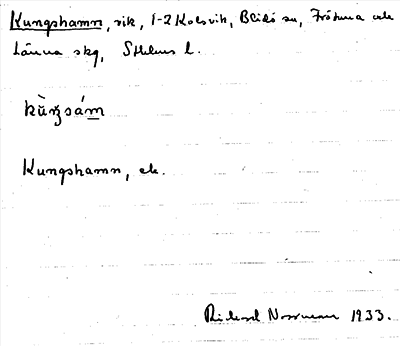 Kungshamn, vik, 1-2 Kolsvik, Blidö sn, Frötuna och
Länna skg, Sthlms l.
kùŋsám
Kungshamn, ek.
Rickard Norrman 1933.